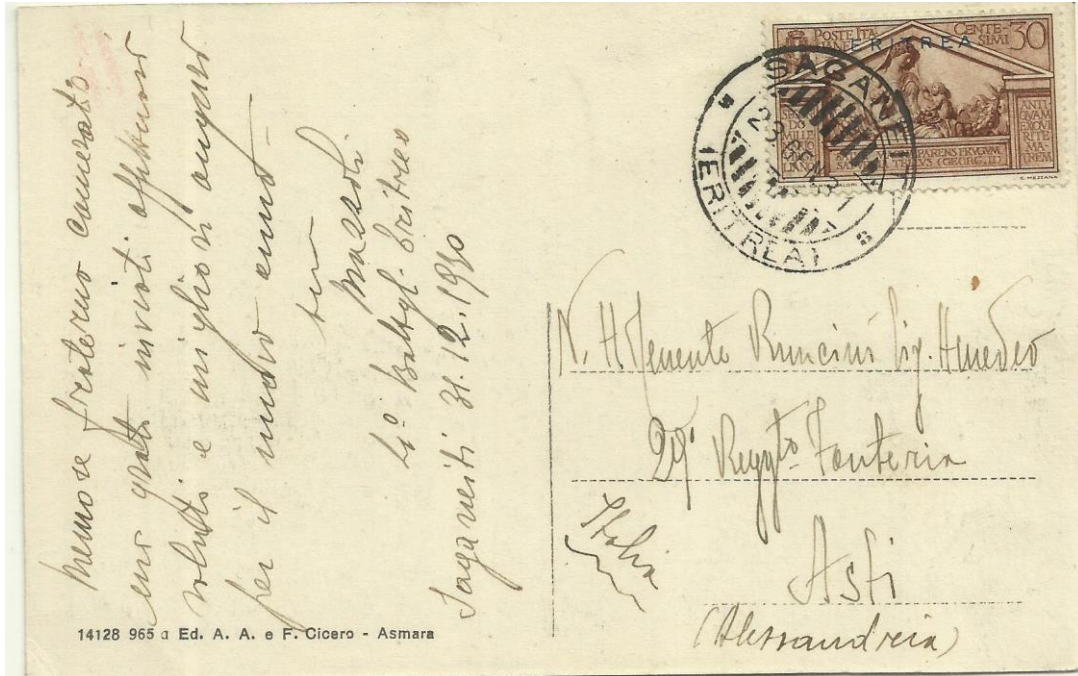 Memore fraterno camerato
invioti affettuosi
saluti e migliori auguri
per il nuovo anno
tuo
4° Battgl. Eritreo
Saganeiti 31.12.1930
14128 965 a Ed. A. A. e F. Cicero - Asmara
POSTE ITALIANE
CENTESIMI
30
ERITREA
ANTIQUAM
EXQUIRITE
MATREM
C. MEZZANA
SAGANEITI
(ERITREA)
N. H. Tenente Sig. Amedeo
29° Reggto Fanteria
Italia
Asti
(Alessandria)